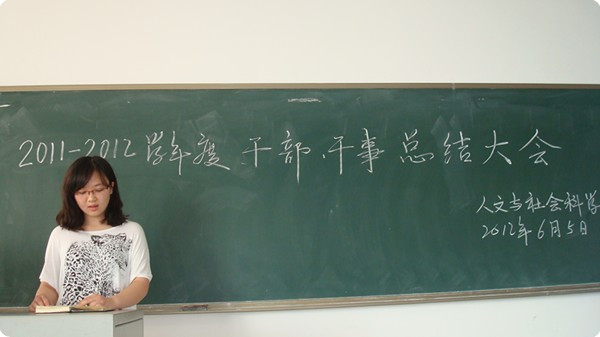 2011-2012学年度干部、干事总结大会
人文与社会科学
2012年6月5日